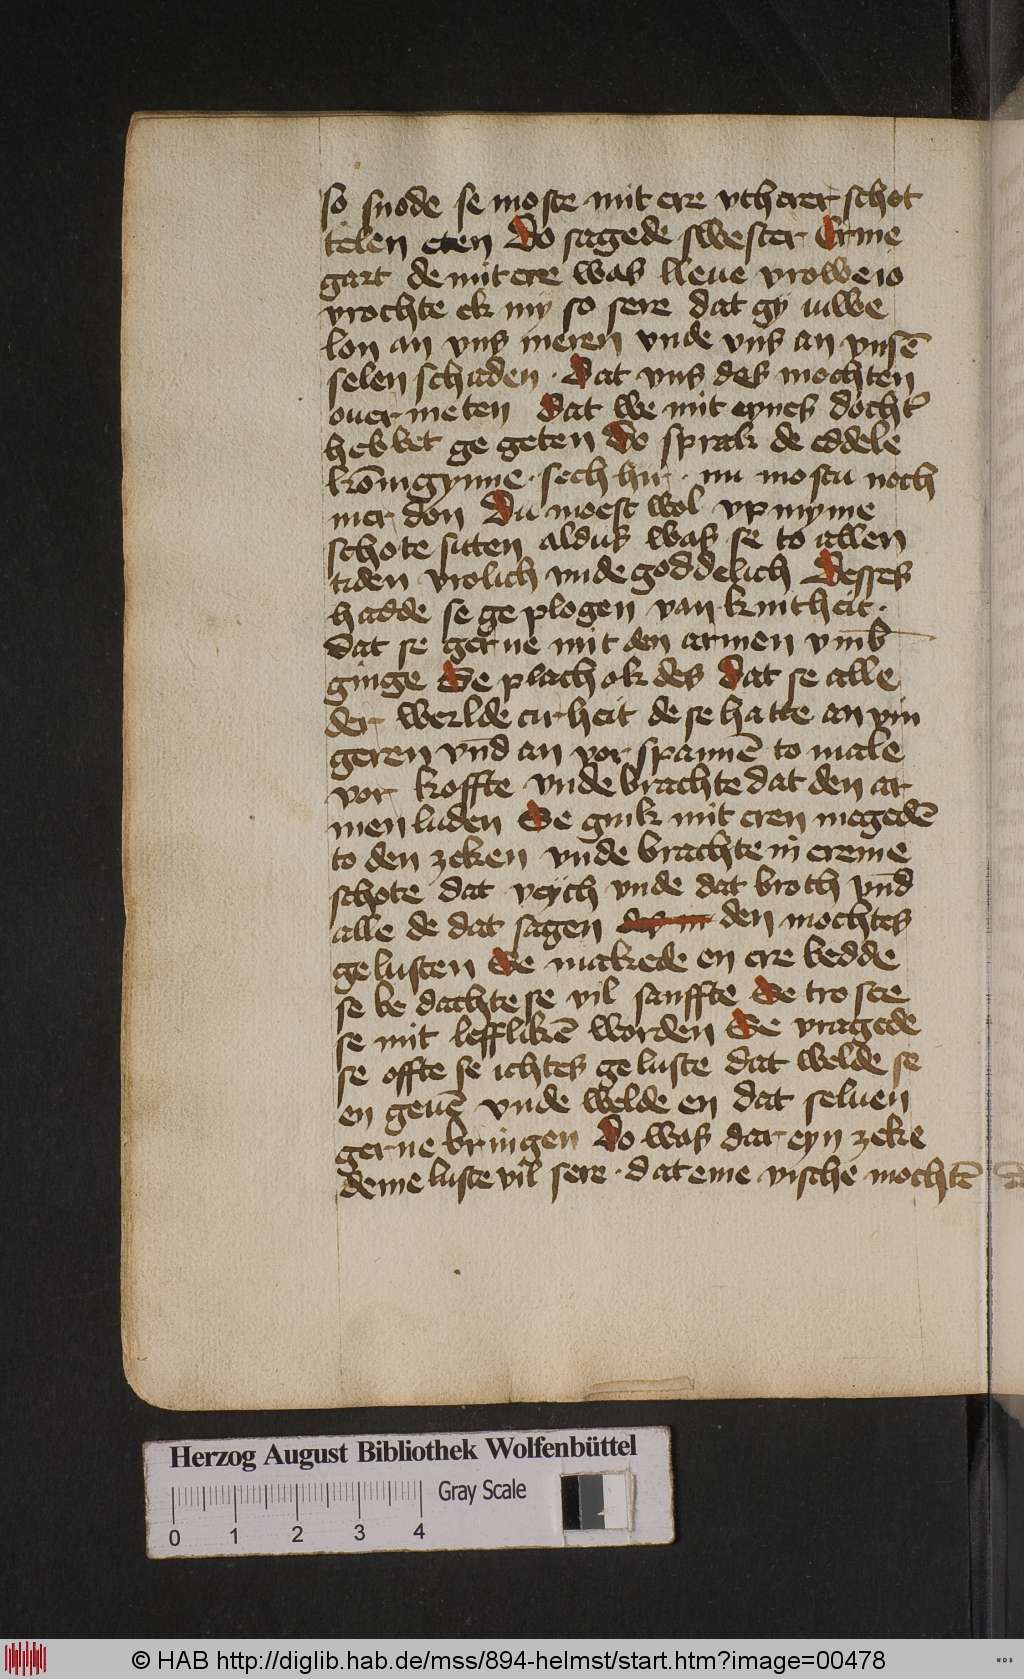 so snode se moste mit ere vth erer schot
telen eten Do sagede swester Erme
gart de mit ere was lleue vrowe io
vrochte ek my so sere dat gy iuwe
lon an vns meren vnde vns an vnsē
selen schaden · Dat vns des mochten
ouer meten dat we mit eynes docht'
hebbet ge geten Do sprak de eddele
kōnigynne · sech hir · nu mostu noch
mer don Du moest wol vp myme
schote sitten aldus was se to allen
tiden vrolich vnde goddelich Desses
hadde se ge plogen van kintheit ·
dat se gerne mit den armen vmb
ginge Se plach ok des dat se alle
der werlde cirheit de se hatte an vin
geren vn̄d an vor spannē to male
vor koffte vnde brachte dat den ar
men luden Se gink mit eren megedē
to den zeken vnde brachte in ereme
schote dat vleysch vnde dat broth vn̄d
alle de dat sagen den mochtes
gelusten Se makede en ere bedde
se be dachte se vil sanffte Se troste
se mit lefflikē worden Se vragede
se offte se ichtes geluste dat welde se
en geuē vnde welde en dat seluen
gerne bringen Do was dar eyn zeke
deme luste vil sere · dat eme vische mochtē
Herzog August Bibliothek Wolfenbüttel
Gray Scale
0 1 2 3 4
© HAB http://diglib.hab.de/mss/894-helmst/start.htm?image=00478